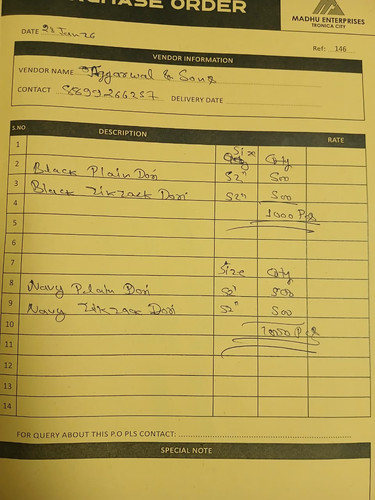 PURCHASE ORDER
MADHU ENTERPRISES
TRONICA CITY
DATE 28 Jan 26
Ref: 146
VENDOR INFORMATION
VENDOR NAME Aggarwal & Sons
CONTACT 8899266257 DELIVERY DATE
S.NO DESCRIPTION RATE
1 Size Qty
2 Black Plain Dori 52" 500
3 Black Zikzack Dori 52" 500
4 1000 Pcs
5
6
7 Size Qty
8 Navy Pelain Dori 500
9 Navy Zikzack Dori 52" 500
10 1000 Pcs
11
12
13
14
FOR QUERY ABOUT THIS P.O PLS CONTACT:
SPECIAL NOTE